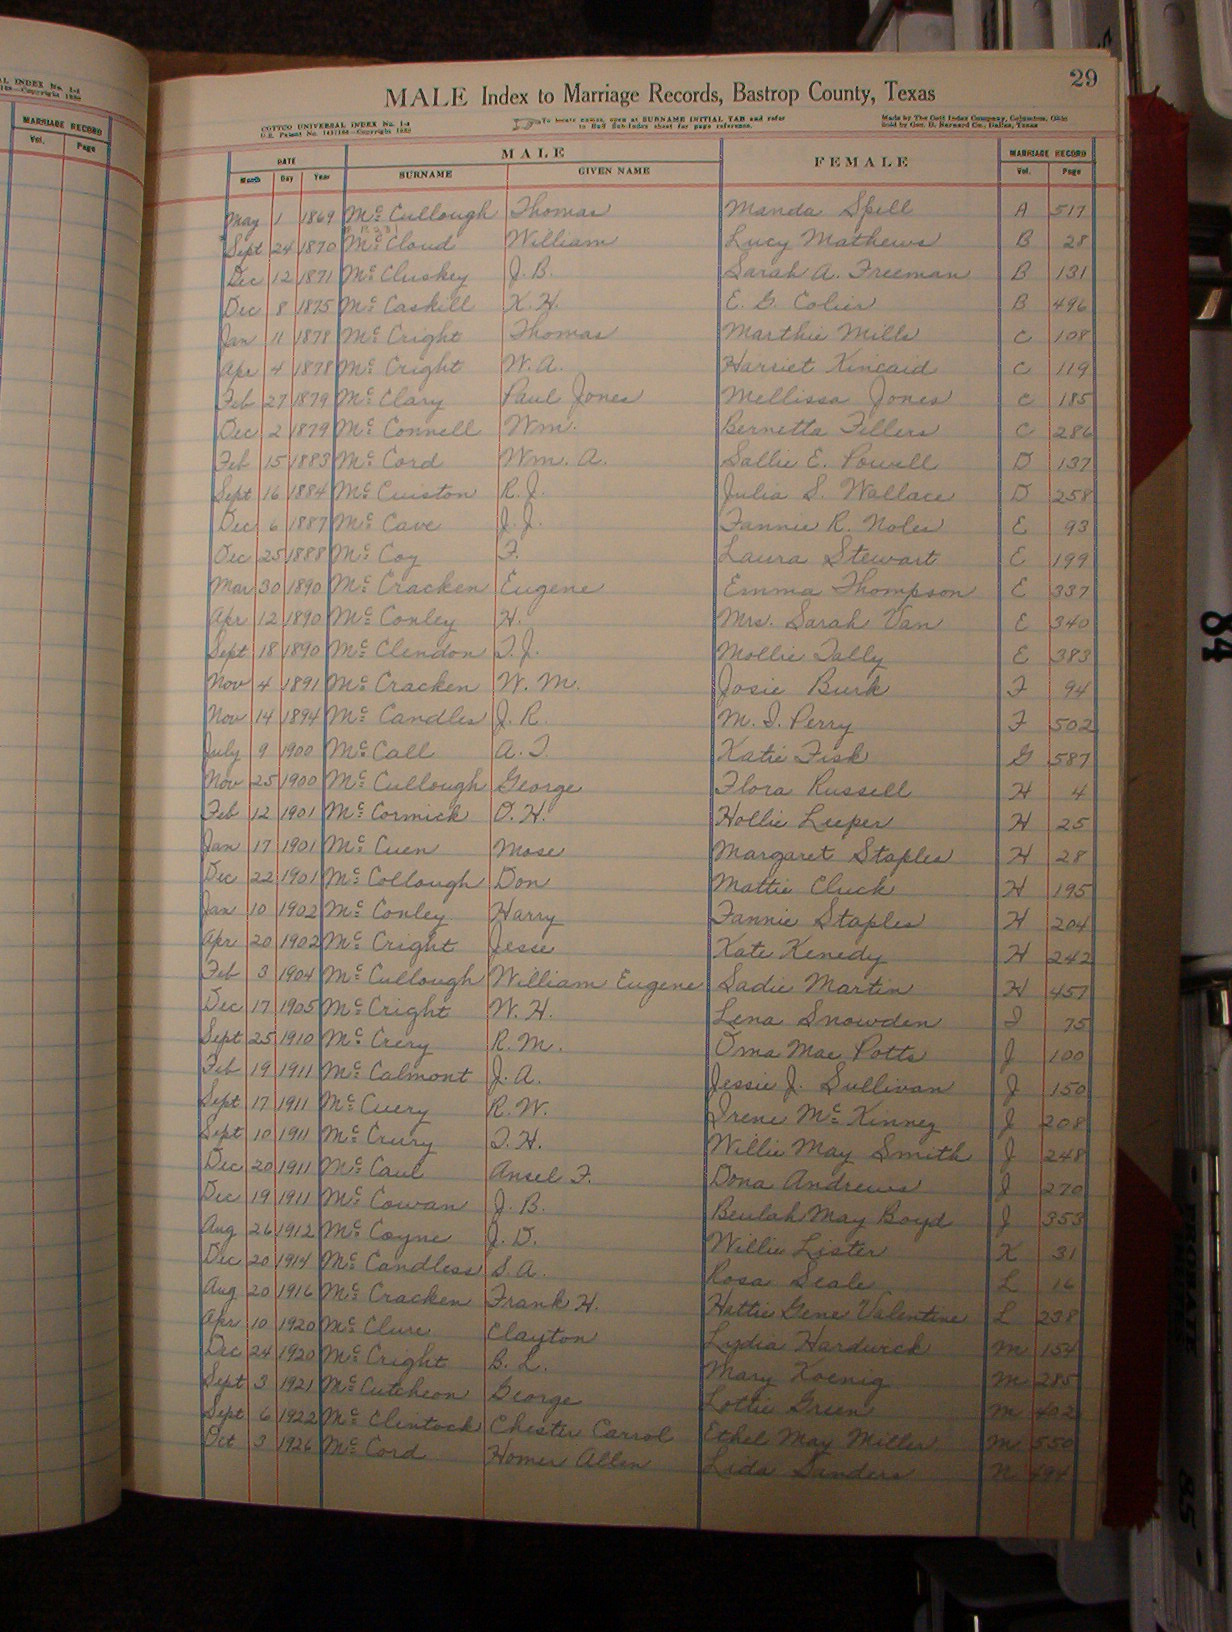 AL INDEX No. 1-4
188—Copyright 1930
MARRIAGE RECORD
Vol. Page
29
MALE Index to Marriage Records, Bastrop County, Texas
COTTCO UNIVERSAL INDEX No. 1-4
To locate names, open at SURNAME INITIAL TAB and refer
to Sub-Index sheet for page reference.
Made by The Cott Index Company, Columbus, Ohio
Sold by Geo. D. Barnard Co., Dallas, Texas
DATE MALE FEMALE MARRIAGE RECORD
Month Day Year SURNAME GIVEN NAME Vol. Page
May 1 1869 Mc Cullough Thomas Manda Spell A 517
Sept 24 1870 Mc Cloud William Lucy Mathews B 28
Dec 12 1871 Mc Cluskey J. B. Sarah A. Freeman B 131
Dec 8 1875 Mc Caskill K. H. E. G. Colier B 496
Jan 11 1878 Mc Cright Thomas Marthie Mills C 108
Apr 4 1878 Mc Cright W. A. Harriet Kincaid C 119
Feb 27 1879 Mc Clary Paul Jones Mellissa Jones C 185
Dec 2 1879 Mc Connell Wm. Bernetta Fillers C 286
Feb 15 1883 Mc Cord Wm. A. Sallie E. Powell D 137
Sept 16 1884 Mc Cuiston R. J. Julia S. Wallace D 258
Dec 6 1887 Mc Cave J. J. Fannie R. Noles E 93
Dec 25 1888 Mc Coy F. Laura Stewart E 199
Mar 30 1890 Mc Cracken Eugene Emma Thompson E 337
Apr 12 1890 Mc Conley H. Mrs. Sarah Van E 340
Sept 18 1890 Mc Clendon T. J. Mollie Tally E 383
Nov 4 1891 Mc Cracken W. M. Josie Burk F 94
Nov 14 1894 Mc Candles J. R. M. I. Perry F 502
July 9 1900 Mc Call A. T. Katie Fisk G 587
Nov 25 1900 Mc Cullough George Flora Russell H 4
Feb 12 1901 Mc Cormick O. H. Hollie Leeper H 25
Jan 17 1901 Mc Cuen Mose Margaret Staples H 28
Dec 22 1901 Mc Collough Don Mattie Cluck H 195
Jan 10 1902 Mc Conley Harry Fannie Staples H 204
Apr 20 1902 Mc Cright Jesse Kate Kenedy H 242
Feb 3 1904 Mc Cullough William Eugene Sadie Martin H 457
Dec 17 1905 Mc Cright W. H. Lena Snowden I 75
Sept 25 1910 Mc Crery R. M. Oma Mae Potts J 100
Feb 19 1911 Mc Calmont J. A. Jessie J. Sullivan J 150
Sept 17 1911 Mc Cuery R. W. Irene Mc Kinney J 208
Sept 10 1911 Mc Crury T. H. Willie May Smith J 248
Dec 20 1911 Mc Caul Ansel F. Dona Andrews J 270
Dec 19 1911 Mc Cowan J. B. Beulah May Boyd J 353
Aug 26 1912 Mc Coyne J. D. Willie Lister K 31
Dec 20 1914 Mc Candless S. A. Rosa Seale L 16
Aug 20 1916 Mc Cracken Frank H. Hattie Gene Valentine L 238
Apr 10 1920 Mc Clure Clayton Lydia Hardwick M 154
Dec 24 1920 Mc Cright B. L. Mary Koenig M 285
Sept 3 1921 Mc Cutcheon George Lottie Green M 402
Sept 6 1922 Mc Clintock Chester Carrol Ethel May Miller M 550
Oct 3 1926 Mc Cord Homer Allen Lida Sanders N 494
84
PROBATE
85